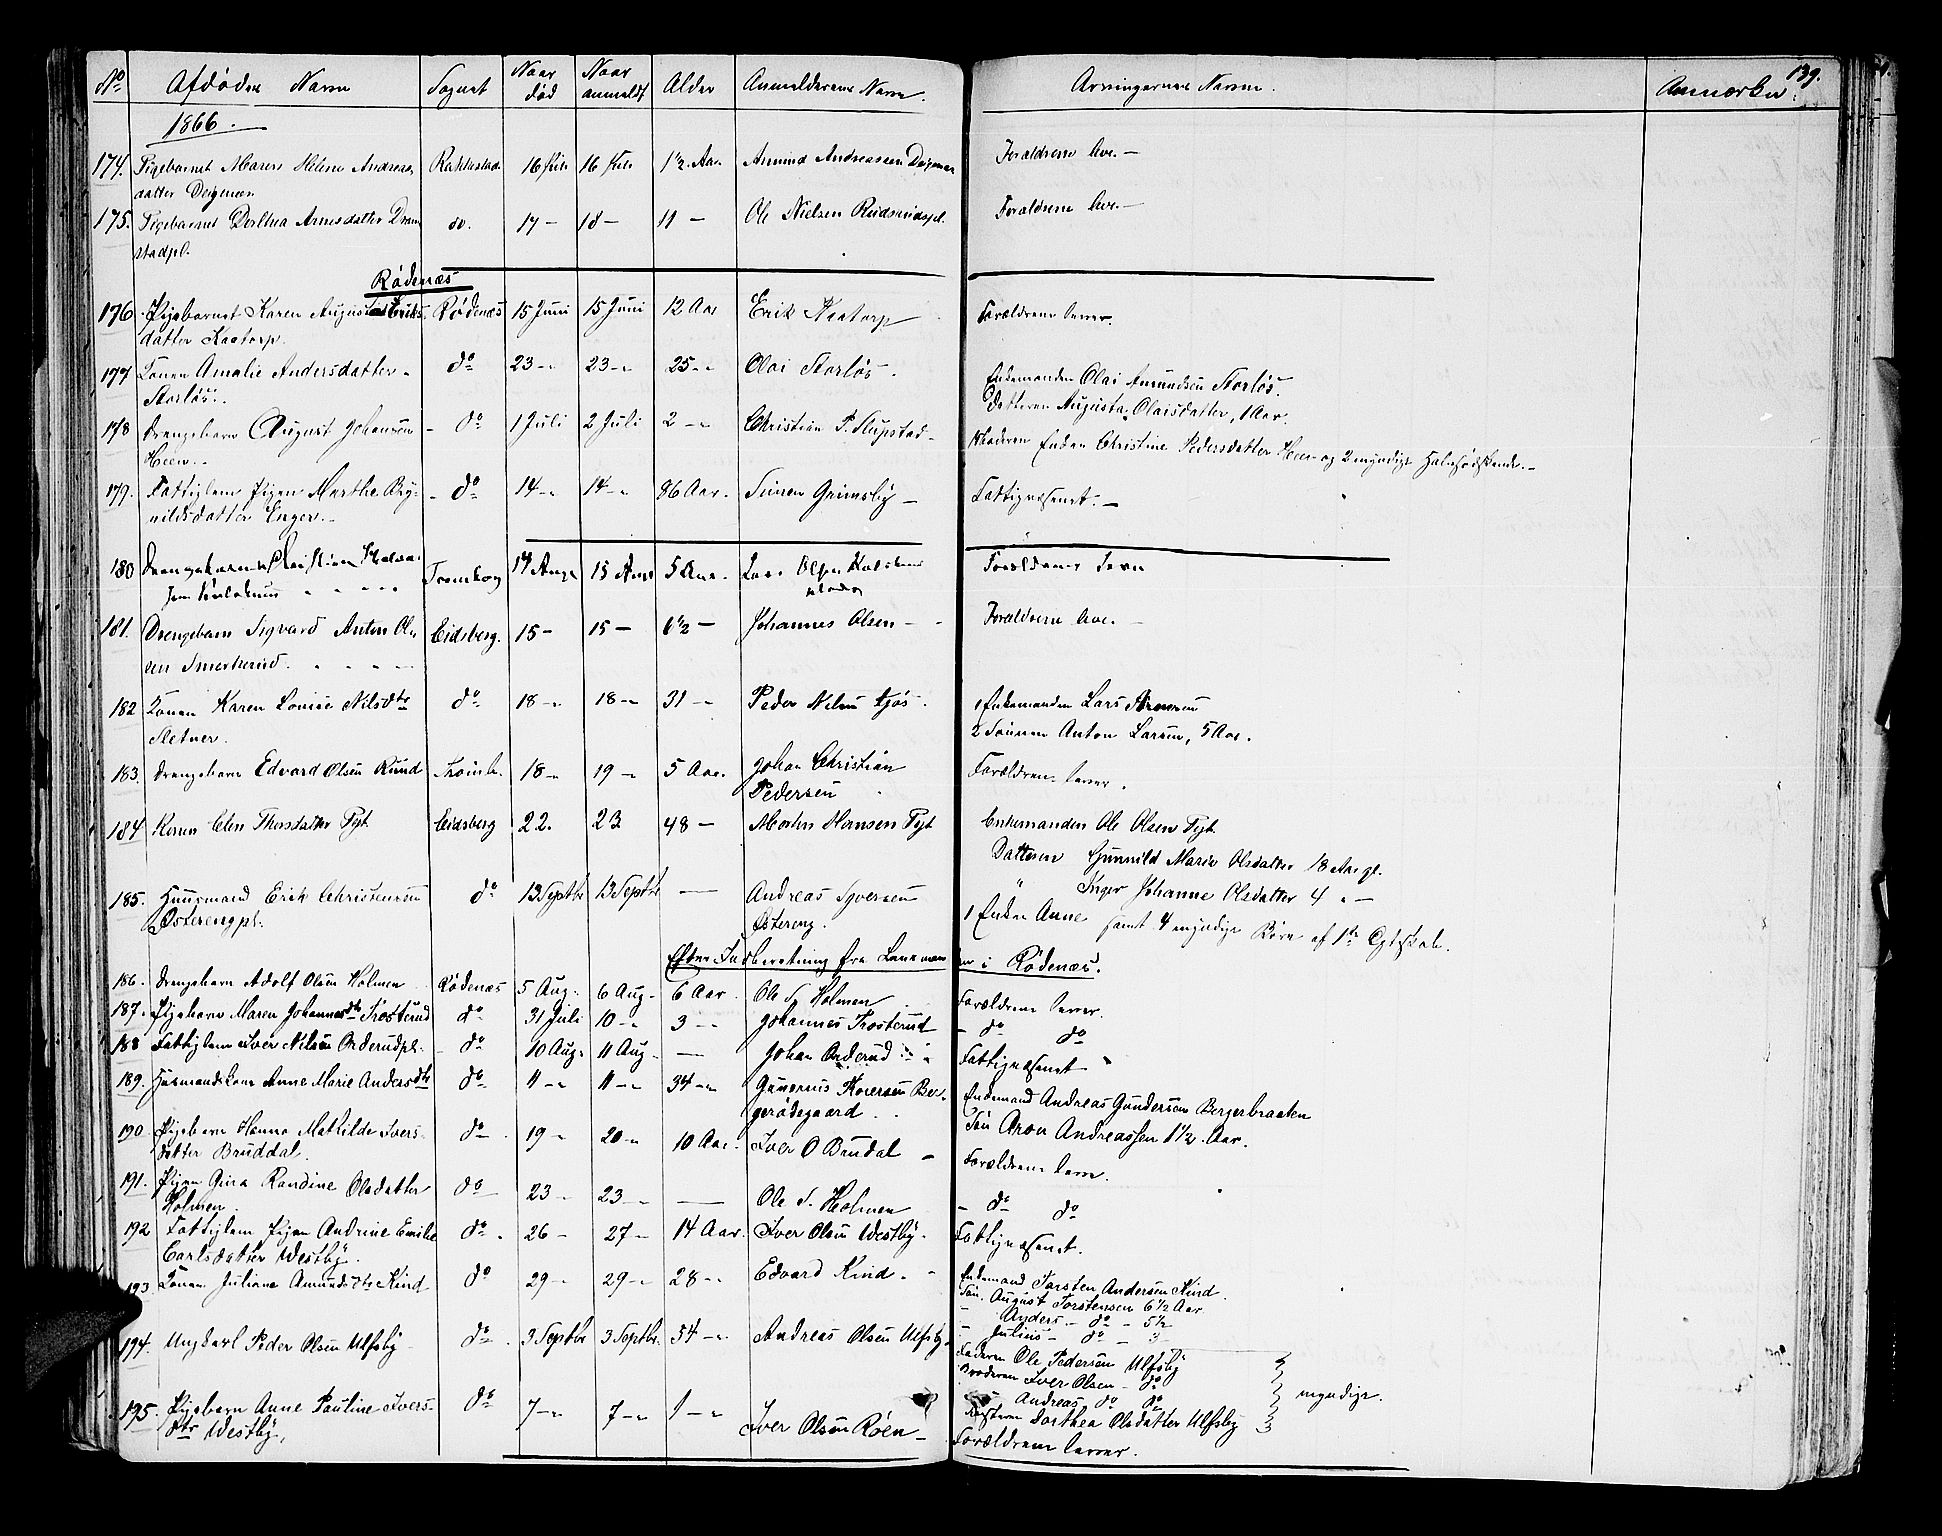 No Afdødes Navn Sognet Naar død Naar anmeldt Alder Anmelderens Navn. Arvingernes Navne. Anmærkn. 139.
1866.
174. Pigebarnet Maren Helene Andreas- Rakkestad 16 Juli 16 Juli 1½ Aar Andreassen Forældrene leve. —
datter
175. Pigebarnet Dorthea Arnesdatter do. 17 — 18 — 11 — Ole Nielsen Rudsrudspl. Forældrene leve. —
stadpl.
Rødenæs
176. Pigebarnet Karen Augusta Eriks- Rødenæs 15 Juni 15 Juni 12 Aar Erik Kaatorp Forældrene lever.
datter Kaatorp.
177 Konen Amalie Andersdatter do 23 -"- 23 -"- 25 -"- Olai Storløs. Enkemanden Olai Amundsen Storløs.
Storløs. Datteren Augusta Olaisdatter, 1 Aar.
178 Drengebarn August Johansen do 1 Juli 2 Juli 2 -"- Christian P. Slupstad Moderen Enken Christine Pedersdatter Heen og 2 myndige Halvsødskende. —
Heen.
179. Fattiglem Pigen Marthe Bry- do 14 -"- 14 -"- 86 Aar. Simen Grimsby — Fattigvæsenet. —
nildsdatter Enger. —
180 Drengebarn Christian Trømborg 14 Aug. 15 Aug. 5 Aar. Lars Olsen Forældrene leve
181. Drengebarn Sigvard Anton Ol- Eidsberg. 15 — 15 — 6½ — Johannes Olsen — Forældrene leve.
sen Smerkerud.
182 Konen Karen Lovise Nilsdtr do 18 -"- 18 -"- 31 -"- Peder Nilsen Gjøs. 1 Enkemanden Lars
Sletner. 2 Sønnen Anton Larsen, 5 Aar.
183. Drengebarn Edvard Olsen Rund Trømb. 18 -"- 19 -"- 5 Aar. Johan Christian Forældrene lever.
Pedersen
184 Konen Elen Thorsdatter Eidsberg 22. 23 48 — Morten Hansen Enkemanden Ole Olsen
Datteren Gunnild Marie Olsdatter 18 Aar gl.
" Inger Johanne Olsdatter 4 " —
185. Huusmand Erik Christensen do 13 Septbr 13 Septbr — Andreas Iversen 1 Enken Anne samt 4 myndige Børn af 1ste Egteskab.
Østerengpl. Østereng.
Efter Indberetning fra Lensmanden i Rødenæs.
186. Drengebarn Adolf Olsen Holmen Rødenæs 5 Aug. 6 Aug. 6 Aar. Ole S. Holmen Forældrene lever.
187. Pigebarn Maren Johannesdtr Trosterud do 31 Juli 10 -"- 3 -"- Johannes Trosterud — do do
188 Fattiglem Iver Nilsen Orderudpl. do 10 Aug. 11 Aug. — Johan Orderud Fattigvæsenet
189. Husmandskone Anne Marie Andersdtr do 11 -"- 11 -"- 34 -"- Gunerius Iversen Ber- Enkemand Andreas Gundersen Bergerbraaten
gerødegaard. Søn Aron Andreassen 1½ Aar.
190 Pigebarn Hanna Mathilde Ivers- do 19 -"- 20 -"- 10 Aar. Iver O Bruudal — Forældrene leve.
datter Bruddal.
191. Pigen Gina Randine Olsdatter do 23 -"- 23 -"- — Ole S. Holmen — do do
Holmen.
192 Fattiglem Pigen Andrine Emilie do 26 — 27 -"- 14 Aar. Iver Olsen Westby. Fattigvæsenet.
Carlsdatter Westby.
193. Konen Juliane Amundsdtr Kind do 29 -"- 29 -"- 28 -"- Edvard Kind. Enkemand Torsten Andersen Kind.
Søn. August Torstensen 6½ Aar
— Anders — do — 5½
— Julius — do — 3
194. Ungkarl Peder Olsen Ulfsby do 3 Septbr 3 Septbr. 54 -"- Andreas Olsen Ulfsby Faderen Ole Pedersen Ulfsby
Broderen Iver Olsen — do
Andreas do do myndige.
Søsteren Dorthea Olsdatter Ulfsby
195. Pigebarn Anne Pauline Ivers- do 7 -"- 7 -"- 1 -"- Iver Olsen Røen — Forældrene lever.
dtr Westby.